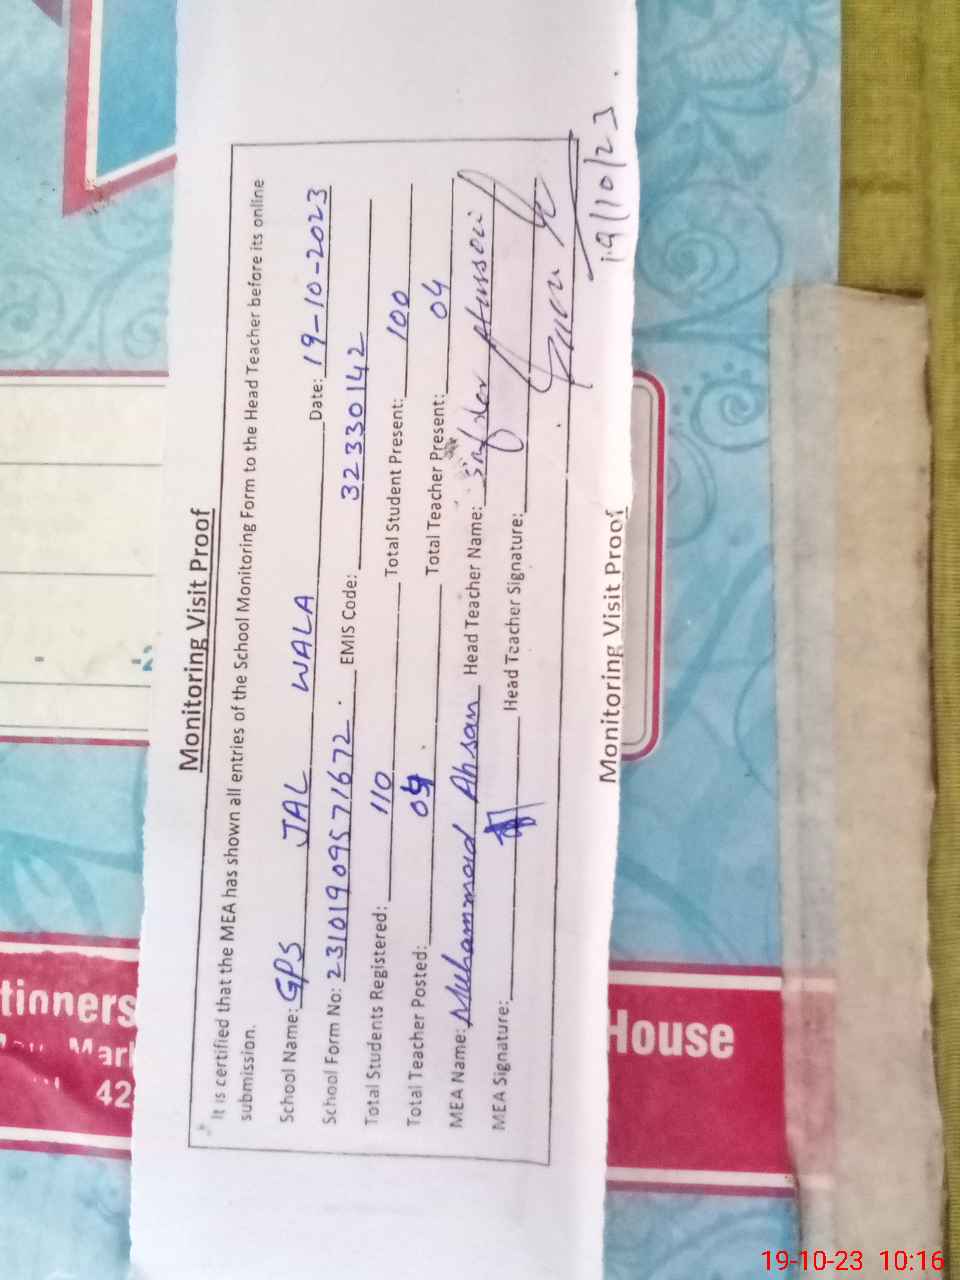 Monitoring Visit Proof
It is certified that the MEA has shown all entries of the School Monitoring Form to the Head Teacher before its online
submission.
School Name: GPS JAL WALA Date: 19-10-2023
School Form No: 2310190957167 2. EMIS Code: 32330142
Total Students Registered: 110 Total Student Present: 100
Total Teacher Posted: 04 Total Teacher Present: 04
MEA Name: Muhammad Ahsan Head Teacher Name: Safder Hussain
MEA Signature: Head Teacher Signature:
19/10/23
Monitoring Visit Proof
tinners
Mark
42
House
19-10-23 10:16